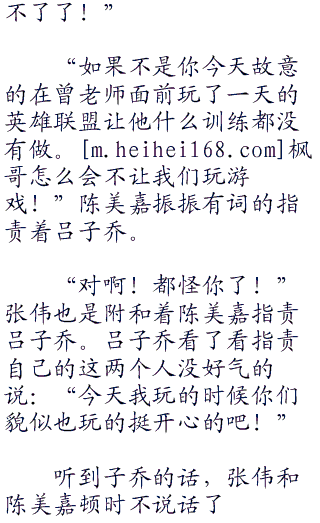 不了了！”
“如果不是你今天故意
的在曾老师面前玩了一天的
英雄联盟让他什么训练都没
有做。[m.heihei168.com]枫
哥怎么会不让我们玩游
戏！”陈美嘉振振有词的指
责着吕子乔。
“对啊！都怪你了！”
张伟也是附和着陈美嘉指责
吕子乔。吕子乔看了看指责
自己的这两个人没好气的
说：“今天我玩的时候你们
貌似也玩的挺开心的吧！”
听到子乔的话，张伟和
陈美嘉顿时不说话了